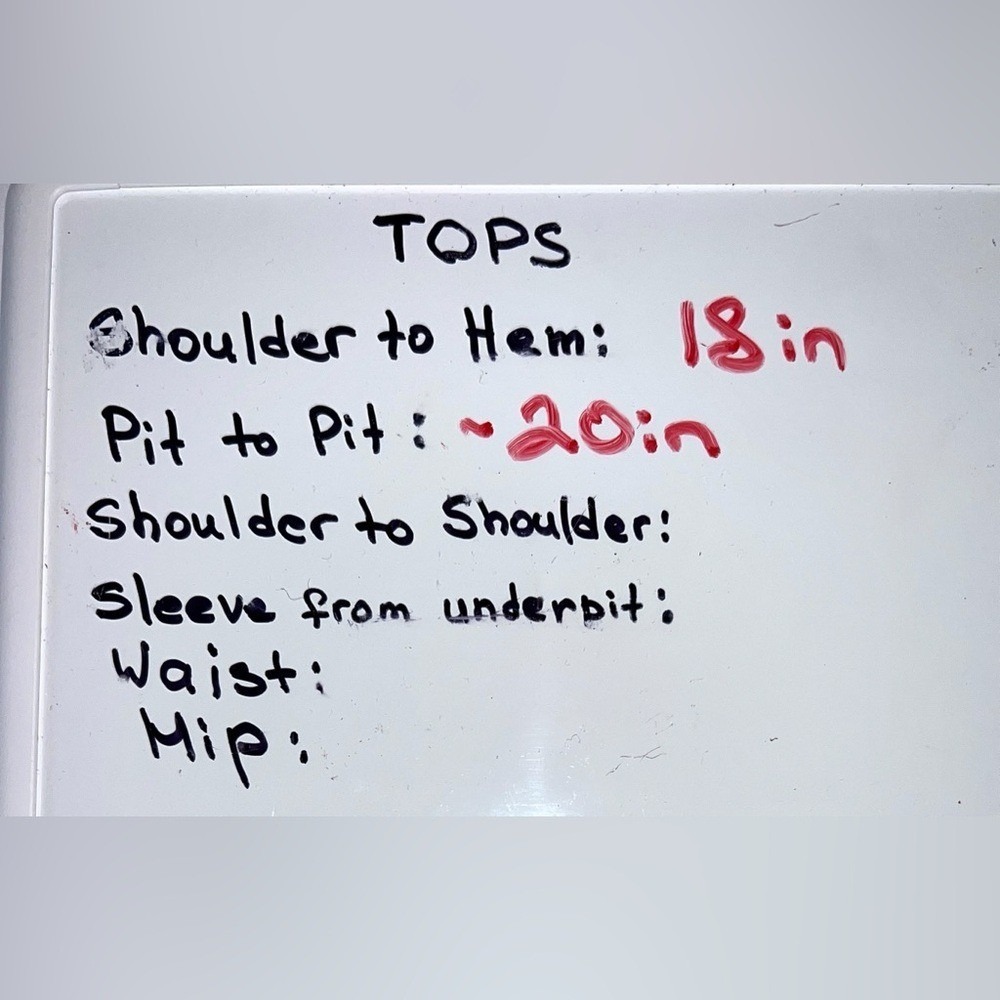 TOPS
Shoulder to Hem: 18in
Pit to Pit: ~20in
Shoulder to Shoulder:
Sleeve from underpit:
Waist:
Hip: